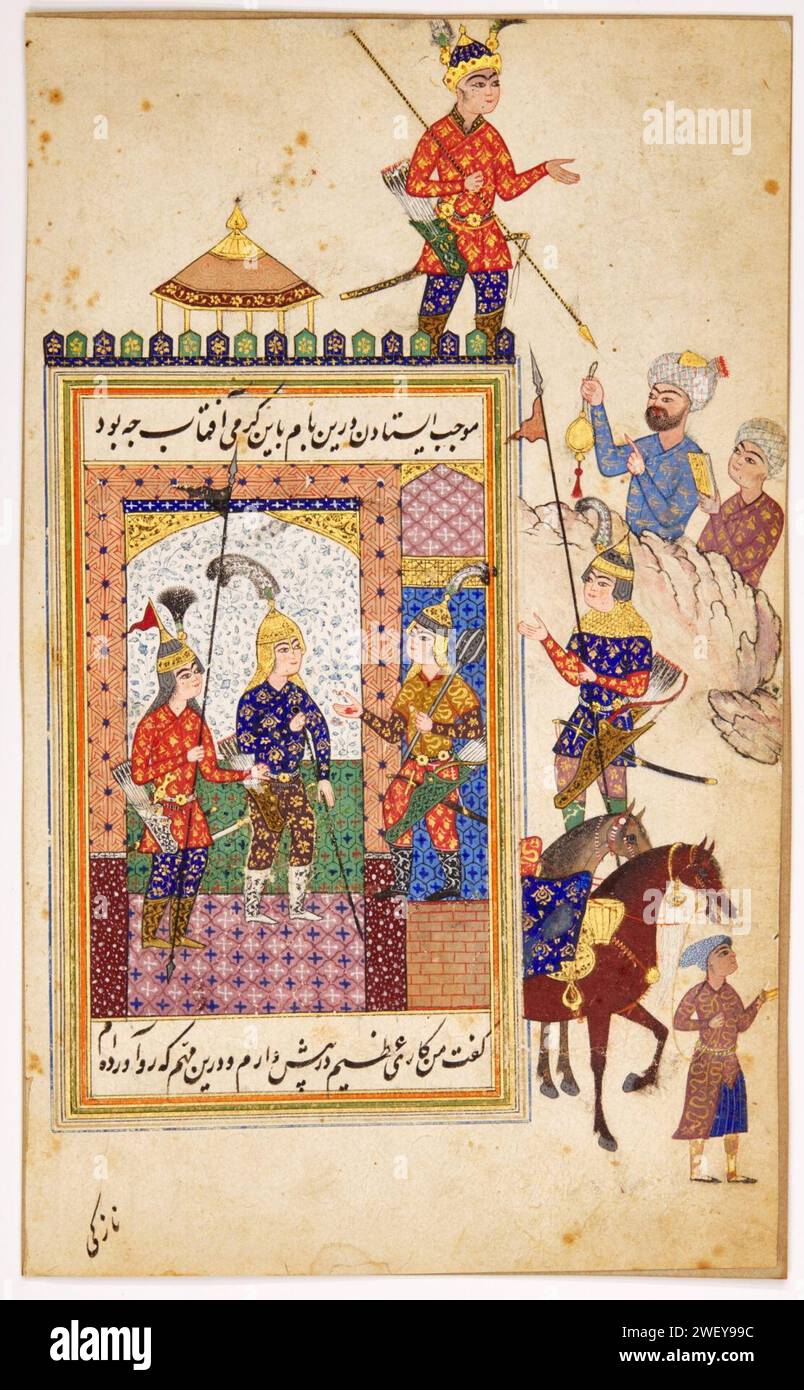 موجب ایستادن درین بام باین گرمی آفتاب چه بود
گفت من کاری عظیم در پیش دارم و درین مهم که رو آورده ام
نازکی
alamy
alamy
Image ID: 2WEY99C
www.alamy.com